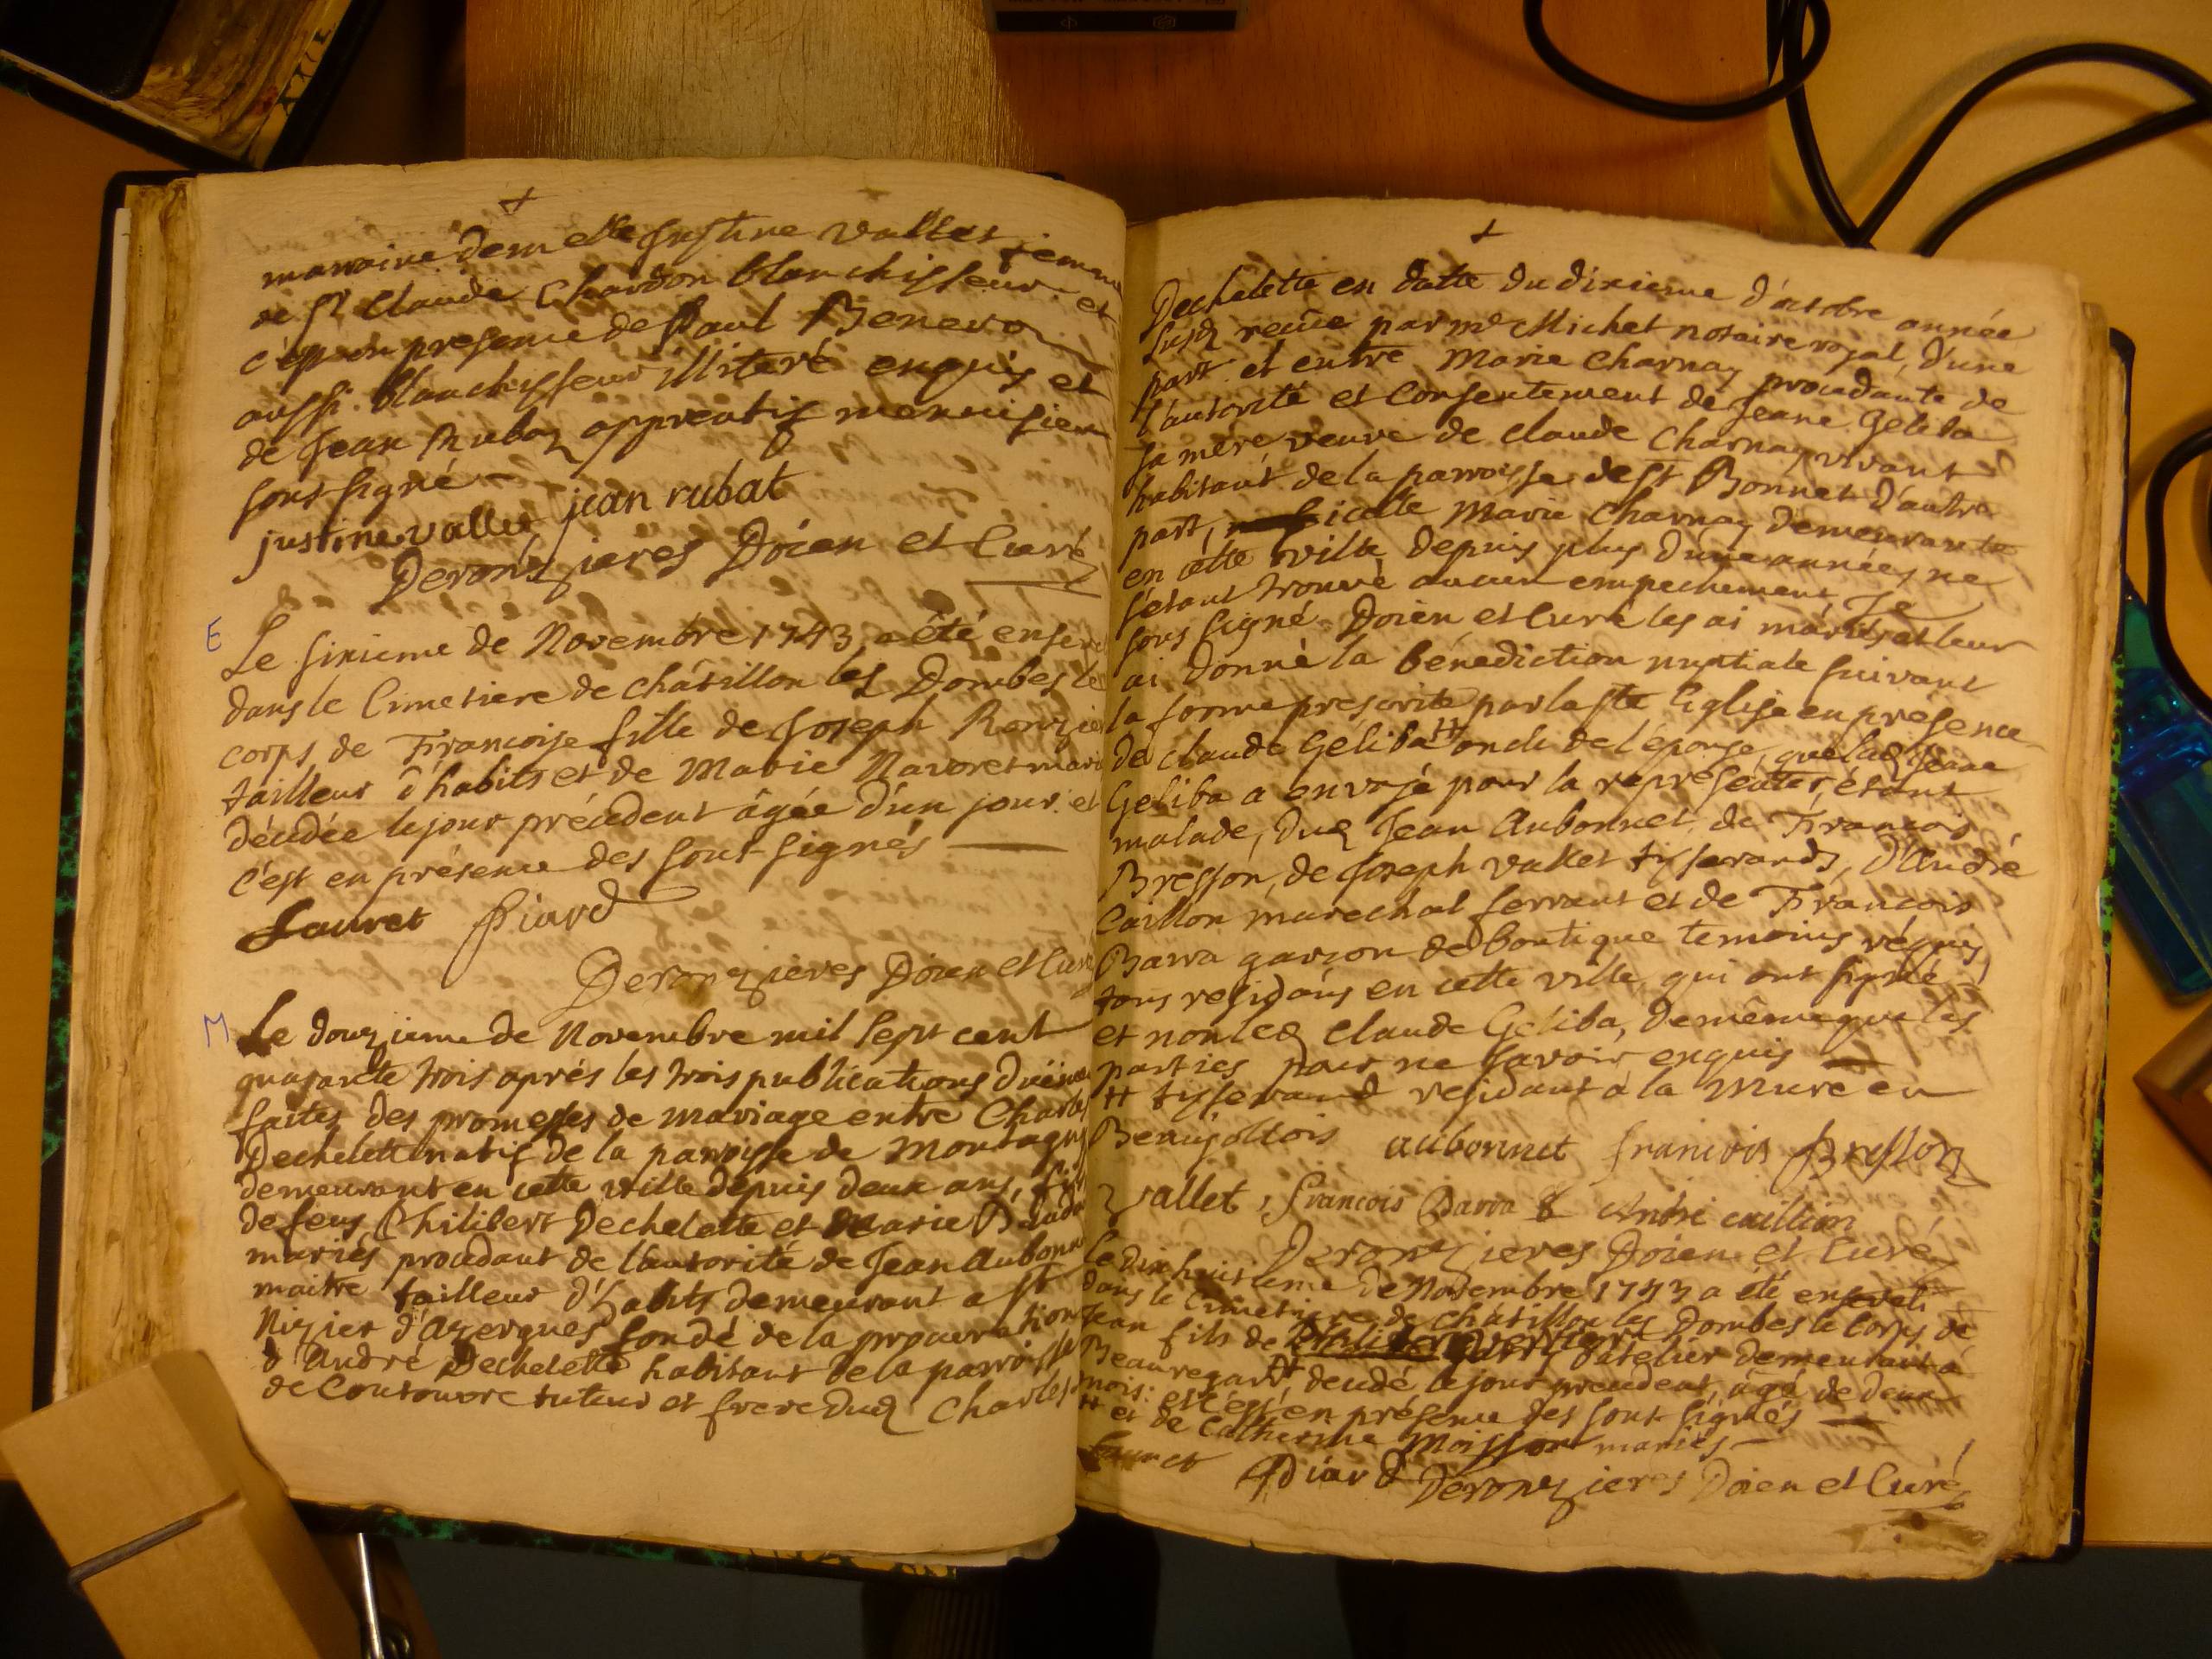 marraine dem elle Justine Vallet femme
de Sr Claude Chardon blanchisseur et
c'est en presence de Paul
aussi blanchisseur illiteré enquis et
de Jean Rubaz apprentif menuisier
sous signé
justine vallet jean rubat
Deronzieres Doien et Curé
E
Le sixieme de Novembre 1743 a été enseve
dans le Cimetiere de châtillon les Dombes le
corps de Françoise fille de Joseph Ronzier
tailleur d'habits et de Marie Navoret mari
décédée le jour précédent âgée d'un jour et
c'est en présence des sous signés
Lauret Piard
Deronzieres Doien et Curé
M
Le douzieme de Novembre mil sept cent
quarante trois aprés les trois publications
faites des promesses de mariage entre Charles
Dechelette natif de la parroisse de Montagny
demeurant en cette ville depuis deux ans, fils
de feus Philibert Dechelette et Marie
mariés procedant de l'autorité de Jean Aubonn
maitre tailleur d'habits demeurant a St
Nizier d'Azergues fondé de la procuration
d'André Dechelette habitant de la parroisse
de Coutouvre tuteur et frere dud Charles
Dechelette en datte du dixieme d'octobre année
susd recûe par me Michet notaire royal, d'une
part et entre Marie Charnay procedante de
l'autorité et consentement de Jeane Geliba
sa mere veuve de Claude Charnay vivant
habitant de la parroisse de St Bonnet d'autre
part, icelle Marie Charnay demeurante
en cette ville depuis plus d'une année, ne
s'etant trouvé aucun empechement Je
sous signé Doien et Curé les ai mariés et leur
ai donné la bénediction nuptiale suivant
la forme prescrite par la ste Eglise en présence
de Claude Géliba ++ oncle de l'épouse, que lad Jeane
Geliba a envoyé pour la représenter, étant
malade, dud Jean Aubonnet, de François
Bresson, de Joseph Vallet tisserands, d'André
Caillon marechal ferrant et de François
Barra garçon de boutique temoins réquis
tous residans en cette ville qui ont signé
et non led Claude Geliba, de même que les
parties pour ne savoir enquis
++ tisserand residant à la Mure en
Beaujollois aubonnet francois Bresson
Vallet, francois Barra & André caillion
Deronzieres Doien et Curé
Le dix huitieme de Novembre 1743 a été enseveli
dans le Cimetiere de châtillon les Dombes le corps de
Jean fils de d'atelier demeurant à
Beauregard ++ decedé le jour precedent, âgé de deux
mois: et c'est en présence des sous signés
++ et de Catherine Moisson mariés
Lauret Piard Deronzieres Doien et Curé